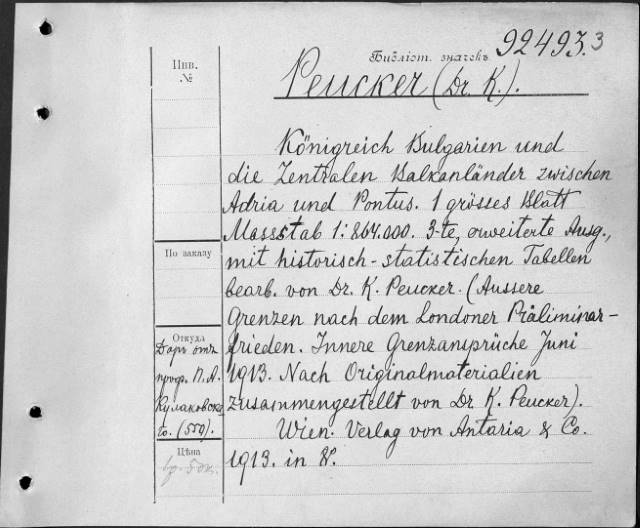 92493.3
Библіот. значекъ
Инв.
№
Peucker (Dr. K.).
Königreich Bulgarien und
die Zentralen Balkanländer zwischen
Adria und Pontus. 1 grösses Blatt
Massstab 1:864.000. 3-te, erweiterte Ausg.,
По заказу
mit historisch-statistischen Tabellen
bearb. von Dr. K. Peucker. (Aussere
Grenzen nach dem Londoner Präliminar-
frieden. Innere Grenzansprüche Juni
1913. Nach Originalmaterialien
zusammengestellt von Dr. K. Peucker).
Wien. Verlag von Antaria & Co.
1913. in 8°.
Откуда
Даръ отъ
проф. П. А.
Кулаковска-
го. (559).
Цѣна